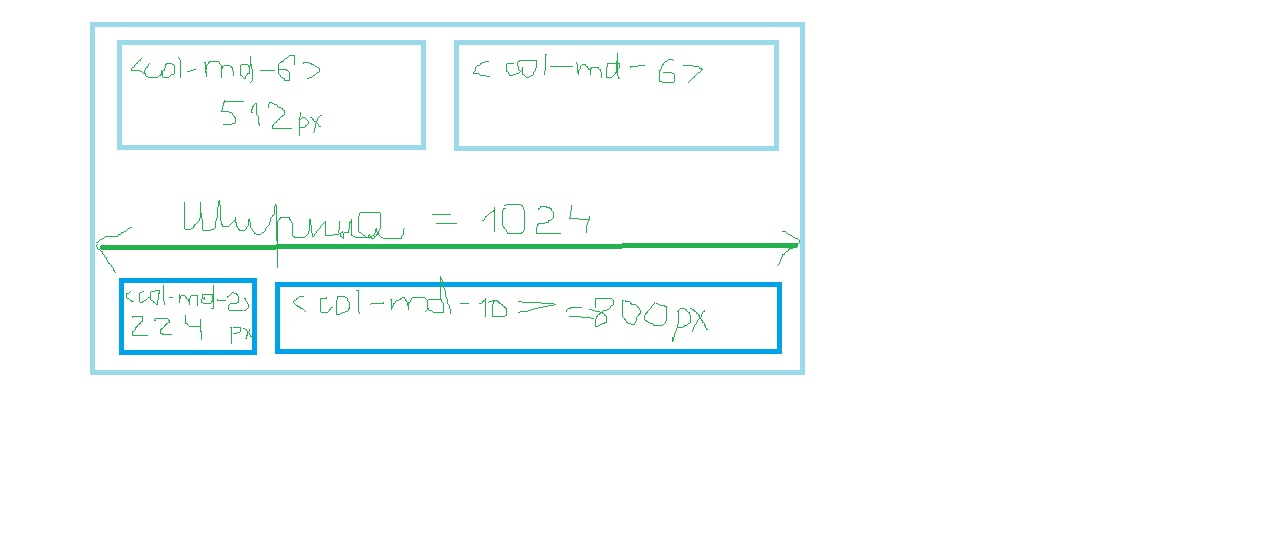 <col-md-6>
512px
<col-md-6>
Ширина = 1024
<col-md-2>
224 px
<col-md-10> =800px